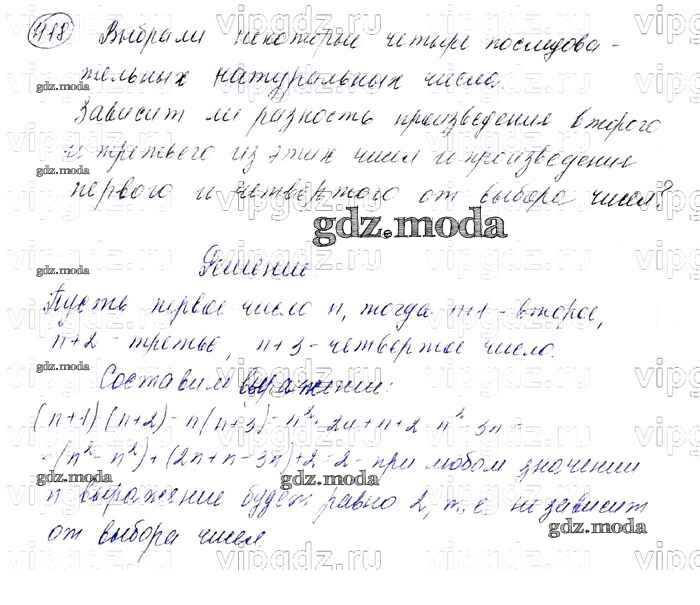 418 Выбрали некоторые четыре последова-
тельных натуральных числа.
gdz.moda
Зависит ли разность произведения второго
и третьего из этих чисел и произведения
gdz.moda
первого и четвертого от выбора чисел?
gdz.moda
Решение
gdz.moda
Пусть первое число n, тогда n+1 - второе,
n+2 - третье, n+3 - четвертое число.
gdz.moda
Составим выражение:
(n+1)(n+2) - n(n+3) = n² + 2n + n + 2 - n² - 3n =
= (n² - n²) + (2n + n - 3n) + 2 = 2 - при любом значении
gdz.moda
n выражение будет равно 2, т.е. не зависит
gdz.moda
gdz.moda
от выбора чисел